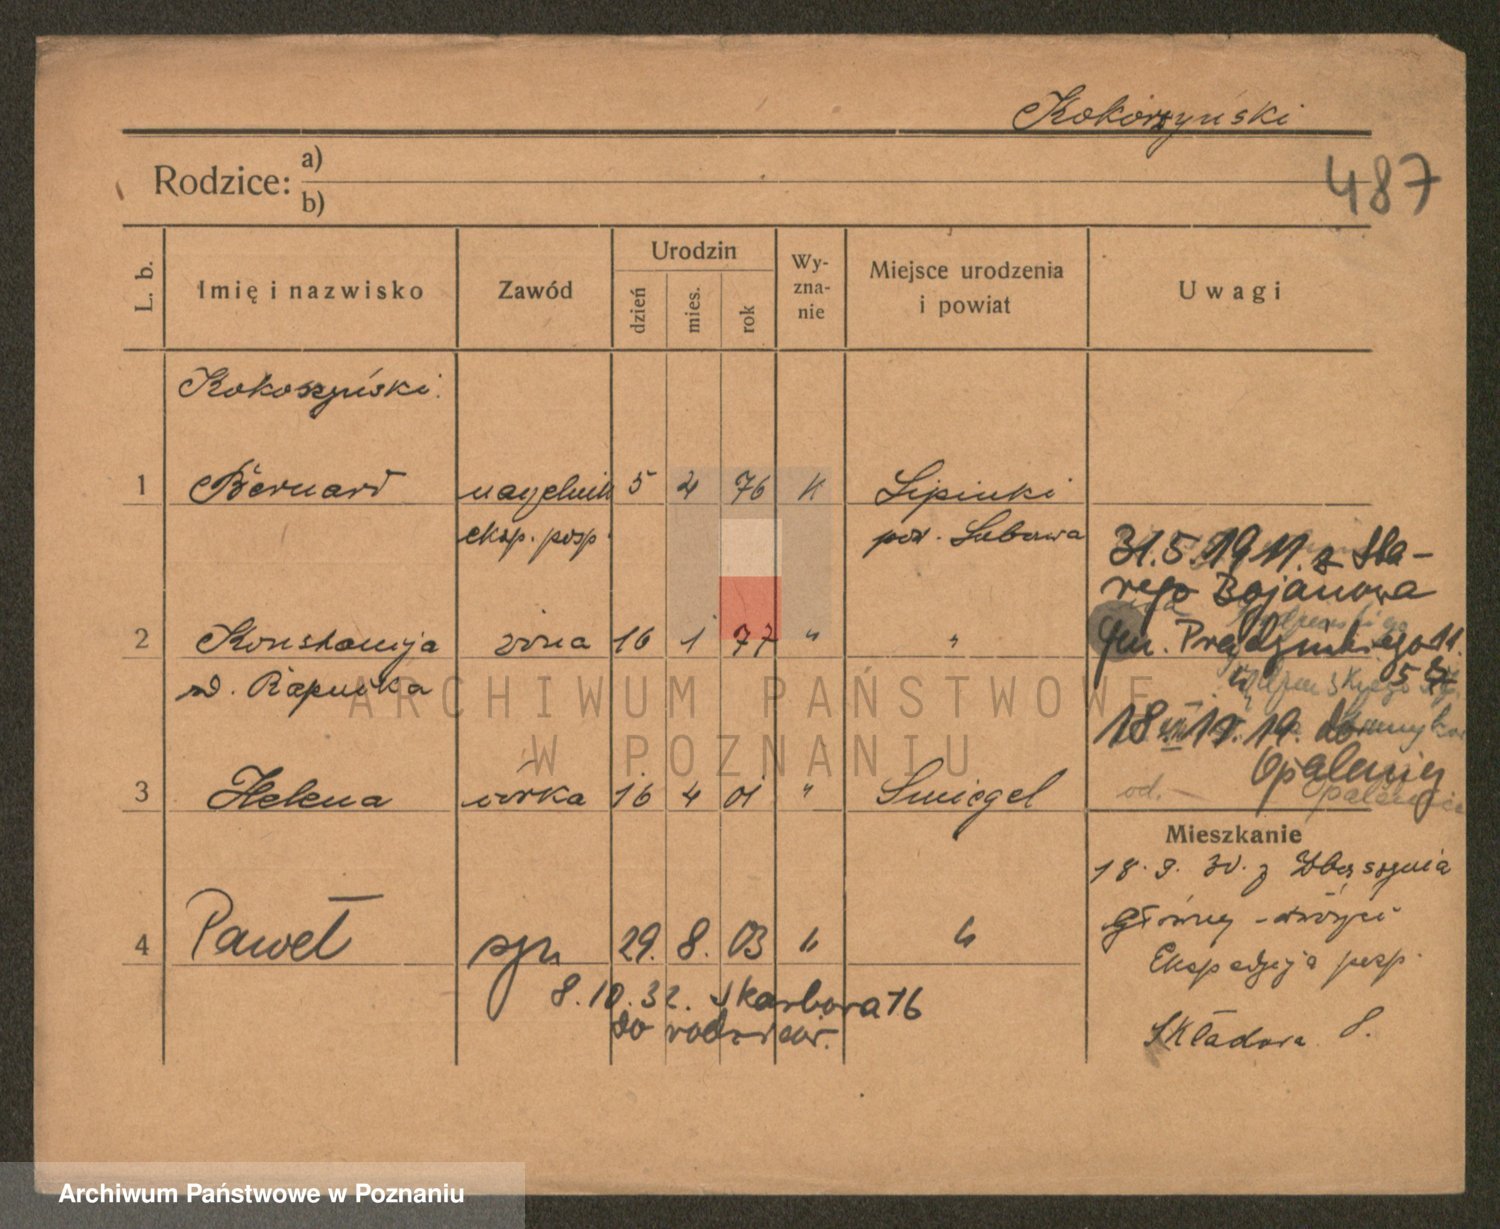 Kokorzyński
Rodzice: a)
b)
487
L. b.
Imię i nazwisko
Zawód
Urodzin
dzień
mies.
rok
Wy-
zna-
nie
Miejsce urodzenia
i powiat
Uwagi
Kokoszyński.
1 Bernard naczelnik 5 4 76 K Lipinki
eksp. posp. pow. Lubawa
31.5.1911. z Sta-
rego Bojanowa
2 Konstancja żona 16 1 77 " "
gen. Prądzyńskiego 11.
d. Rzepnicka
18
Opalenicy
3 Helena córka 16 4 01 " Śmigel
od. Opalenica
Mieszkanie
18. 9. 30. z Zbąszynia
4 Paweł syn 29. 8. 03 " "
Ekspedycja posp.
8.10.32. Skarbowa 16
do rodziców.
Składowa 8.
ARCHIWUM PAŃSTWOWE
W POZNANIU
Archiwum Państwowe w Poznaniu